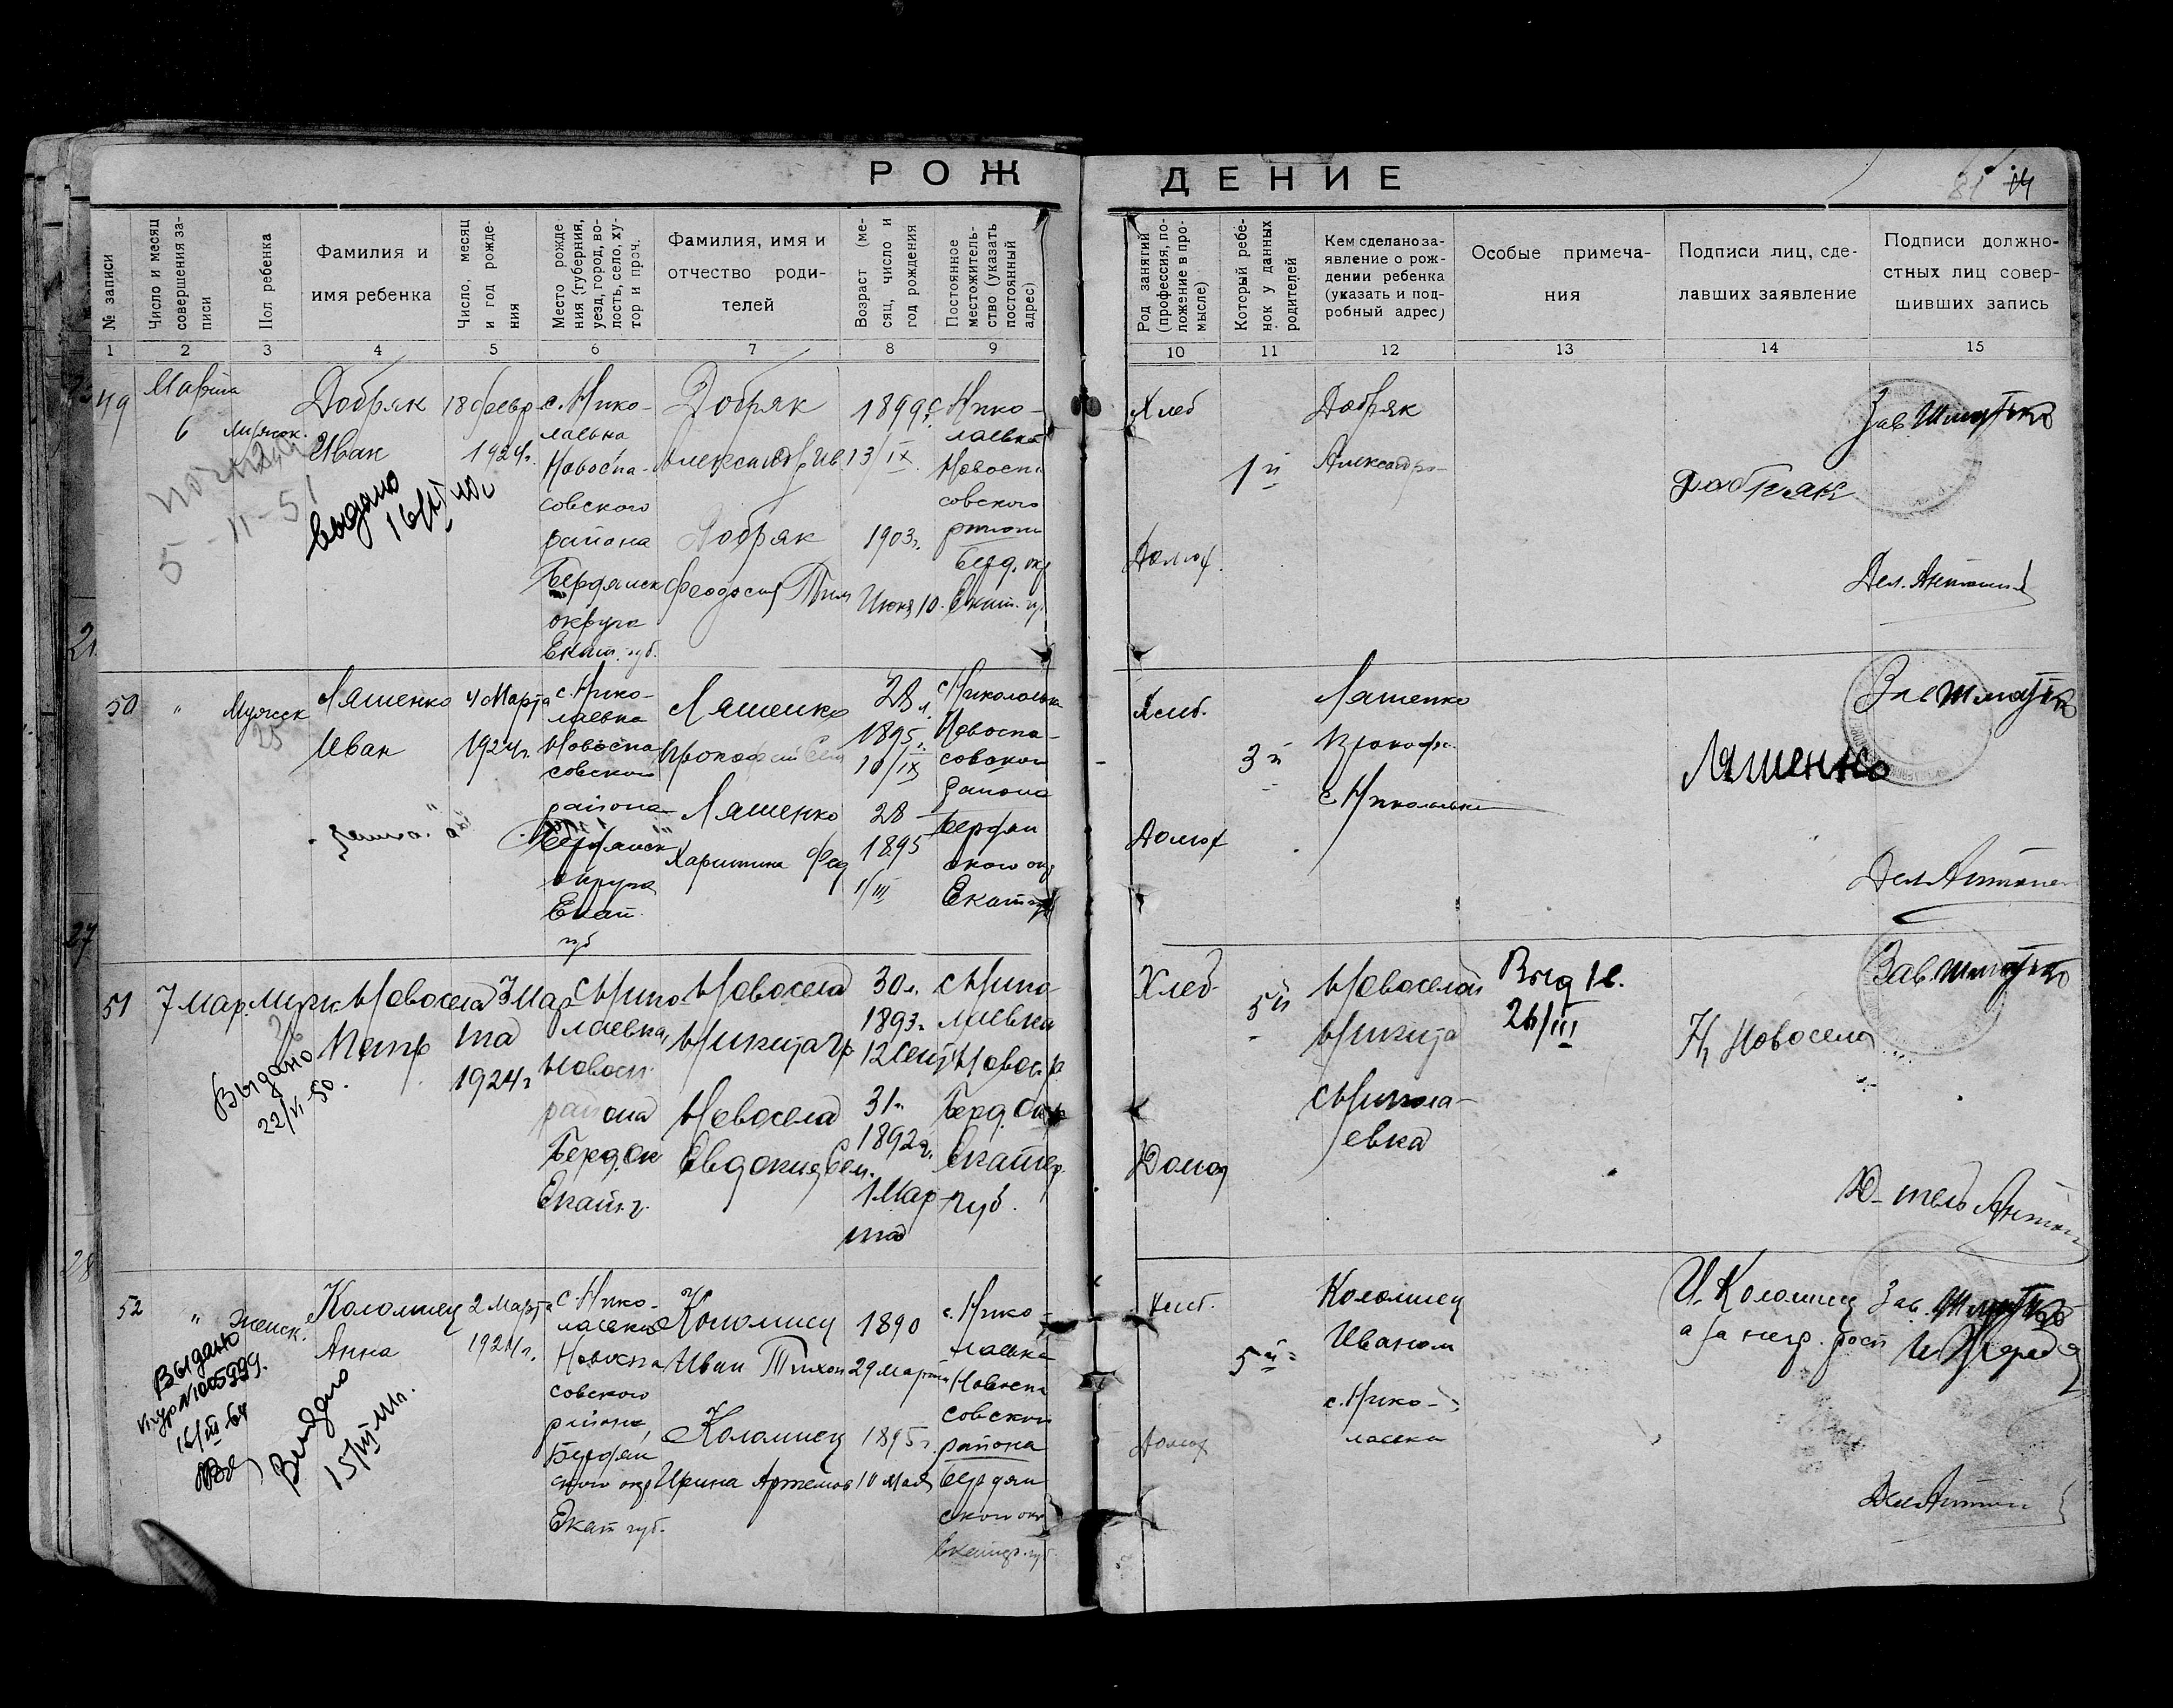 РОЖДЕНИЕ
№ записи
Число и месяц совершения записи
Пол ребенка
Фамилия и
имя ребенка
Число, месяц
и год рожде-
ния
Место рожде
ния (губерния,
уезд, город, во-
лость, село, ху-
тор и проч.
Фамилия, имя и
отчество роди-
телей
Возраст (ме-
сяц, число и
год рождения
Постоянное
местожитель-
ство (указать
постоянный
адрес)
Род занятий
(профессия, по-
ложение в про-
мысле)
Который ребе-
нок у данных
родителей
Кем сделано за-
явление о рож-
дении ребенка
(указать и под-
робный адрес)
Особые примеча-
ния
Подписи лиц, сде-
лавших заявление
Подписи должно-
стных лиц совер-
шивших запись
1 2 3 4 5 6 7 8 9 10 11 12 13 14 15
49
Марта
6
Добряк
Иван
выдано
18 февр.
1924г.
с. Нико-
лаевка
Новоспа-
совского
района
Бердянск
округа
Екат. губ.
Добряк
Александр Ив
Добряк
Феодосия Тим
1899г.
13/IX.
1903г.
Июня 10.
с. Нико-
лаевка
Новоспа
совского
района
Берд. окр
Екат. гу.
Хлеб
Домох.
1й
Добряк
Александр
Добряк
Зав. Шмутко
Дел.
50
"
Мужск
25
Ляшенко
Иван
4 Марта
1924г.
с. Нико-
лаевка
Новоспа
совского
района
Бердянск
округа
Екат
губ
Ляшенко
Прокофий
Ляшенко
Харитина Фед
28 л.
1895г.
10/IX
28
1895
1/III
с Николаевка
Новоспа-
совского
района
Бердян
ского окр
Екат губ
Хлеб.
Домох
3й
Ляшенко
Прокофий
с Николаевка
Ляшенко
Зав Шмутко
Дел
51
7 Мар.
Мужск.
Новосела
Петр
Выдано
22/VI-50.
3 Мар
та
1924г
с Нико
лаевка,
Новосп.
района
Берд. Ок
Екат. г.
Новосела
Никита Гр
Новосела
Евдокия Сем.
30 л.
1893г.
12 Сент
31 г.
1892г.
1 Мар
та
с Нико
лаевка
Новос. р.
Берд. Окр
Екатер.
губ.
Хлеб
Домох
5й
Новосела
Никита
с Никола-
евка
26/III
Н, Новосела
Зав. Шмутко
52
"
Женск.
Коломиец
Анна
Выдано
16/III-64
Выдано
2 Марта
1924г.
с. Нико-
лаевка
Новоспа
совского
района,
Бердян
ского окр.
Екат губ.
Коломиец
Иван Тихон
Коломиец
Ирина Артемов
1890
29 марта
1895г.
10 Мая
с. Нико-
лаевка
Новоспа
совского
района
Бердян
ского окр
Екатер. губ
Хлеб.
Домох
5й
Коломиец
Иваном
с. Нико-
лаевка
И. Коломиец
а за негр. росп
Зав. Шмутко
Дел